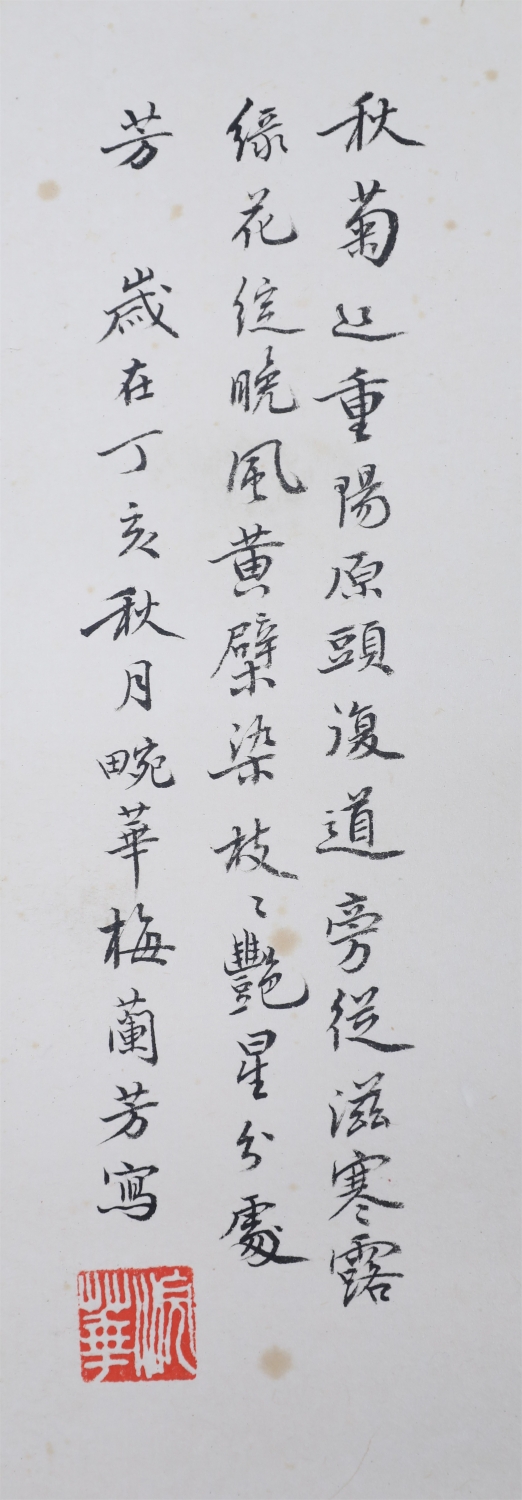 秋菊近重陽原頭復道旁從滋寒露
緣花綻晚風黃檗染枝〻艷星分處
芳 歲在丁亥秋月畹華梅蘭芳寫
浣華